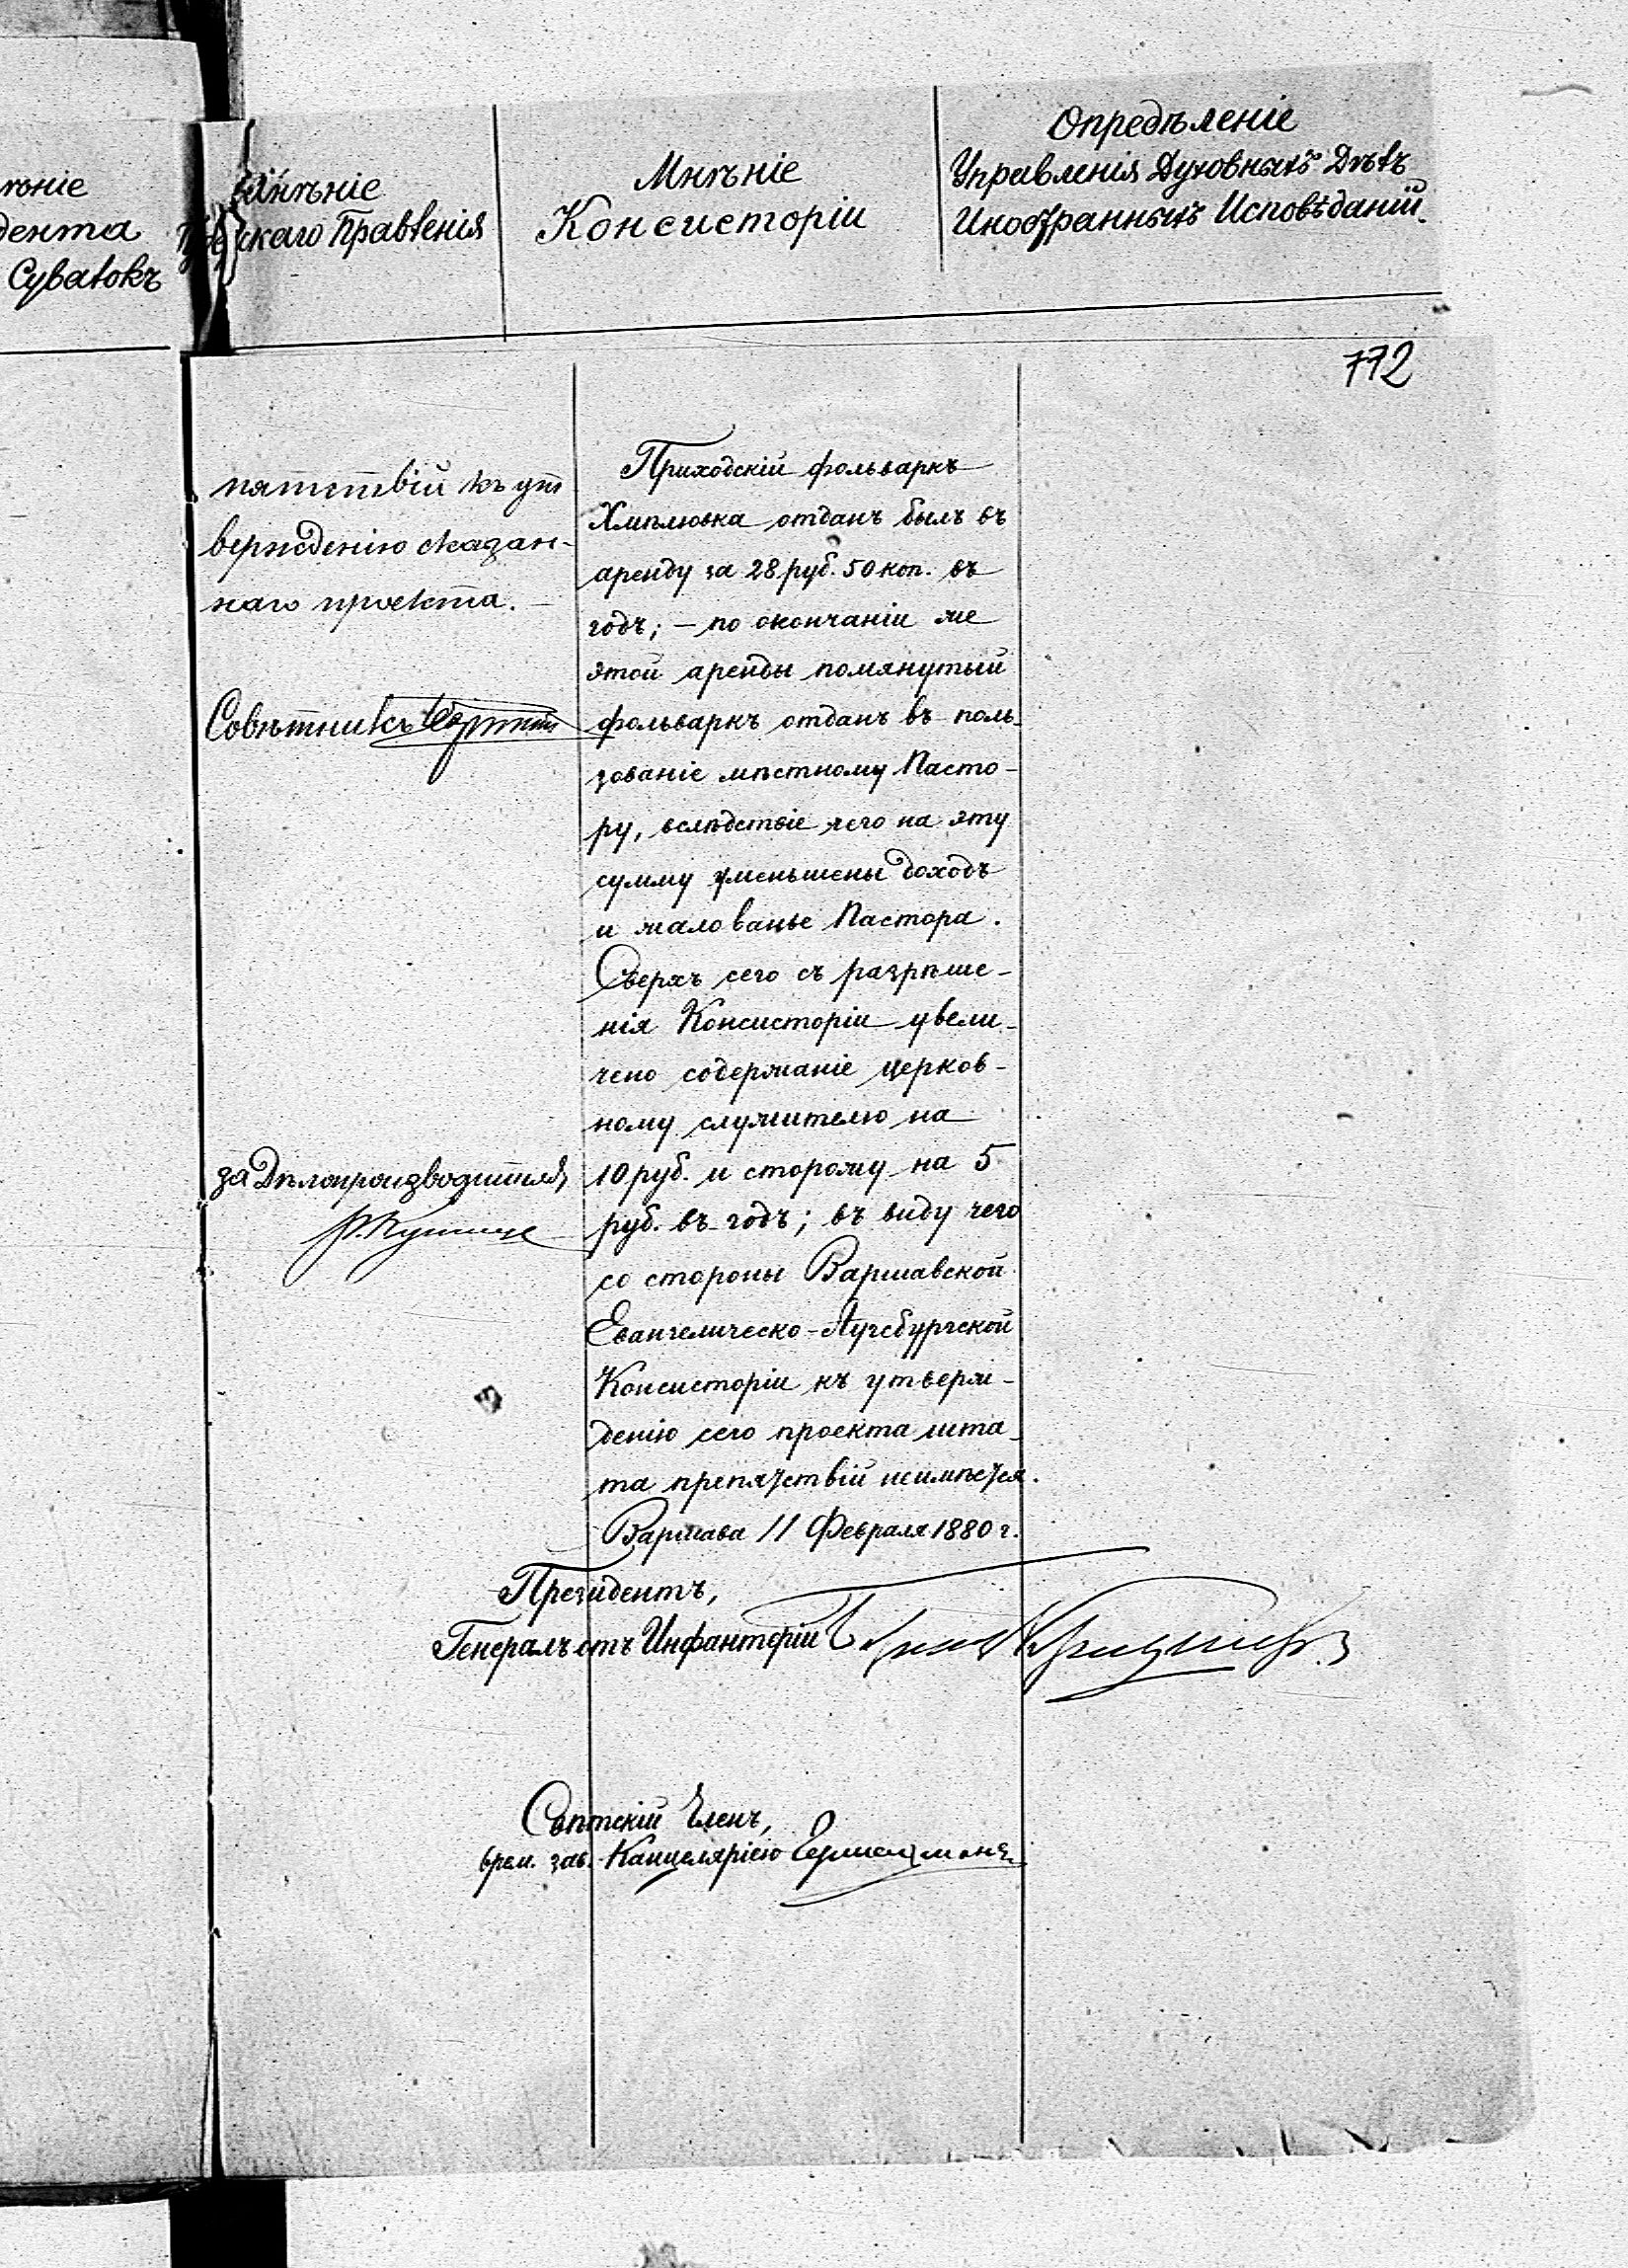 ѣніе
дента
Сувалокъ
Мнѣніе
скаго Правленія
Мнѣніе
Консисторіи
Опредѣленіе
Управленія Духовныхъ Дѣлъ
Иностранныхъ Исповѣданій.
772
пятствій къ ут
вержденію сказан-
наго проекта. —
Совѣтникъ
за Дѣлопроизводителя,
Приходскій фольваркъ
Хмѣлювка отданъ былъ въ
аренду за 28 руб. 50 коп. въ
годъ; — по окончаніи же
этой аренды помянутый
фольваркъ отданъ въ поль-
зованіе мѣстному Пасто-
ру, вслѣдствіе чего на эту
сумму уменьшены доходъ
и жалованье Пастора.
Сверхъ сего съ разрѣше-
нія Консисторіи увели-
чено содержаніе церков-
ному служителю на
10 руб. и сторожу на 5
руб. въ годъ; въ виду чего
со стороны Варшавской
Евангелическо-Аугсбургской
Консисторіи къ утверж-
денію сего проекта шта-
та препятствій неимѣется.
Варшава 11 Февраля 1880 г.
Президентъ,
Генералъ отъ Инфантеріи
Свѣтскій Членъ,
врем. зав. Канцеляріею